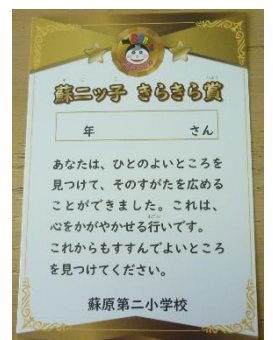 蘇二ッ子 きらきら賞
年 さん
あなたは、ひとのよいところを
見つけて、そのすがたを広める
ことができました。これは、
心をかがやかせる行いです。
これからもすすんでよいところ
を見つけてください。
蘇原第二小学校